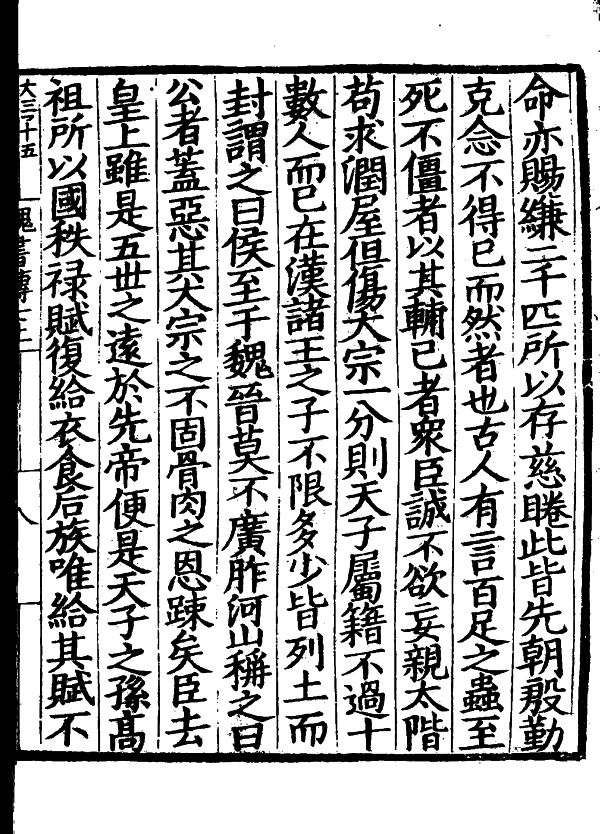 命亦賜縑二千匹所以存慈睠此皆先朝殷勤
克念不得已而然者也古人有言百足之蟲至
死不僵者以其輔已者衆臣誠不欲妄親太階
苟求潤屋但傷大宗一分則天子屬籍不過十
數人而已在漢諸王之子不限多少皆列土而
封謂之曰侯至于魏晉莫不廣胙河山稱之曰
公者蓋惡其大宗之不固骨肉之恩踈矣臣去
皇上雖是五世之遠於先帝便是天子之孫高
祖所以國秩禄賦復給衣食后族唯給其賦不
大三十五
魏書傳十二
八